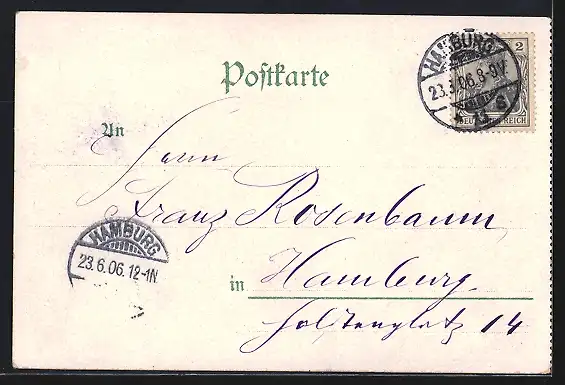 Postkarte
HAMBURG
23.3.06.8-9V.
2
DEUTSCHES REICH
An
Herrn
Franz Rosenbaum
HAMBURG
23.6.06.12-1N.
in Hamburg.
Holstenplatz 14